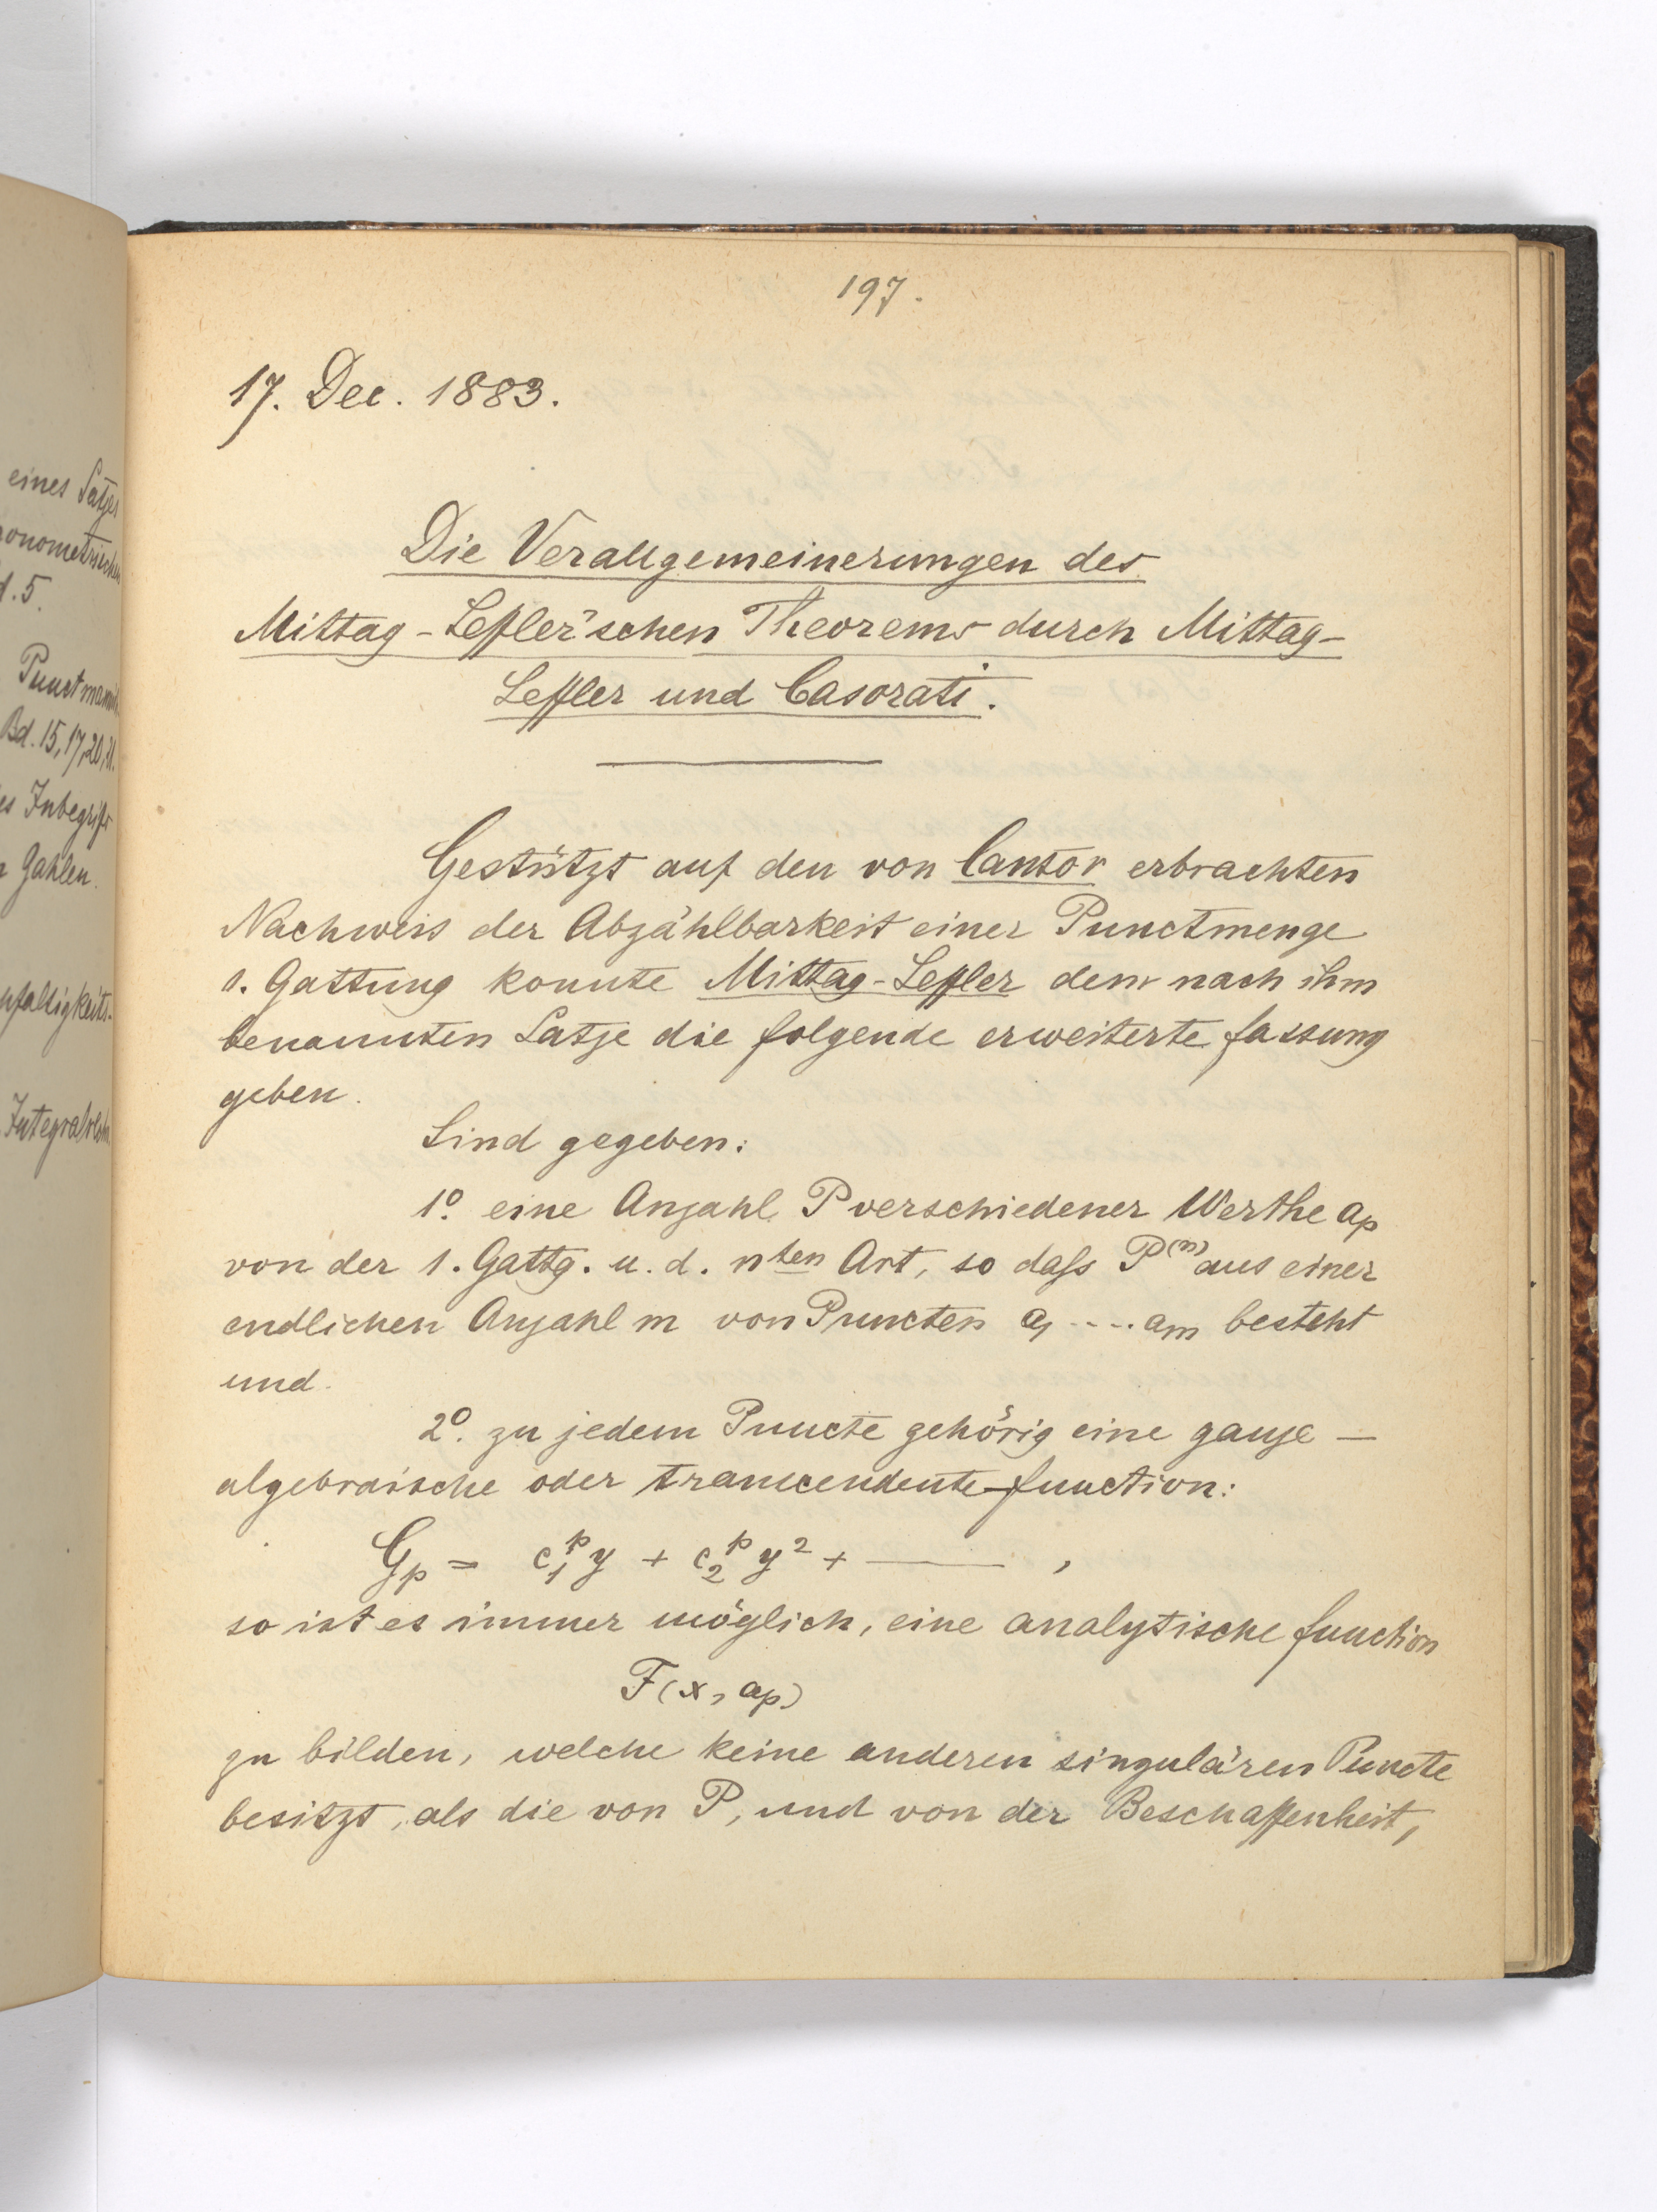 eines Satzes
onometrischen
d. 5.
Punctmannic
Bd. 15, 17, 20, 21.
es Inbegriffs
Zahlen.
nfaltigkeits-
197.
17. Dec. 1883.
Die Verallgemeinerungen des
Mittag-Leffler'schen Theorems durch Mittag-
Leffler und Casorati.
Gestützt auf den von Cantor erbrachten
Nachweis der Abzählbarkeit einer Punctmenge
1. Gattung konnte Mittag-Leffler dem nach ihm
benannten Satze die folgende erweiterte Fassung
geben.
Sind gegeben:
1º. eine Anzahl P verschiedener Werthe ap
von der 1. Gattg. u. d. nten Art, so daſs P(n) aus einer
endlichen Anzahl m von Puncten a1 .... am besteht
und.
2º. zu jedem Puncte gehörig eine ganze —
algebraische oder transcendente function:
Gp = c1^p y + c2^p y² + —— ,
so ist es immer möglich, eine analytische function
F(x, ap)
zu bilden, welche keine anderen singulären Puncte
besitzt, als die von P, und von der Beschaffenheit,